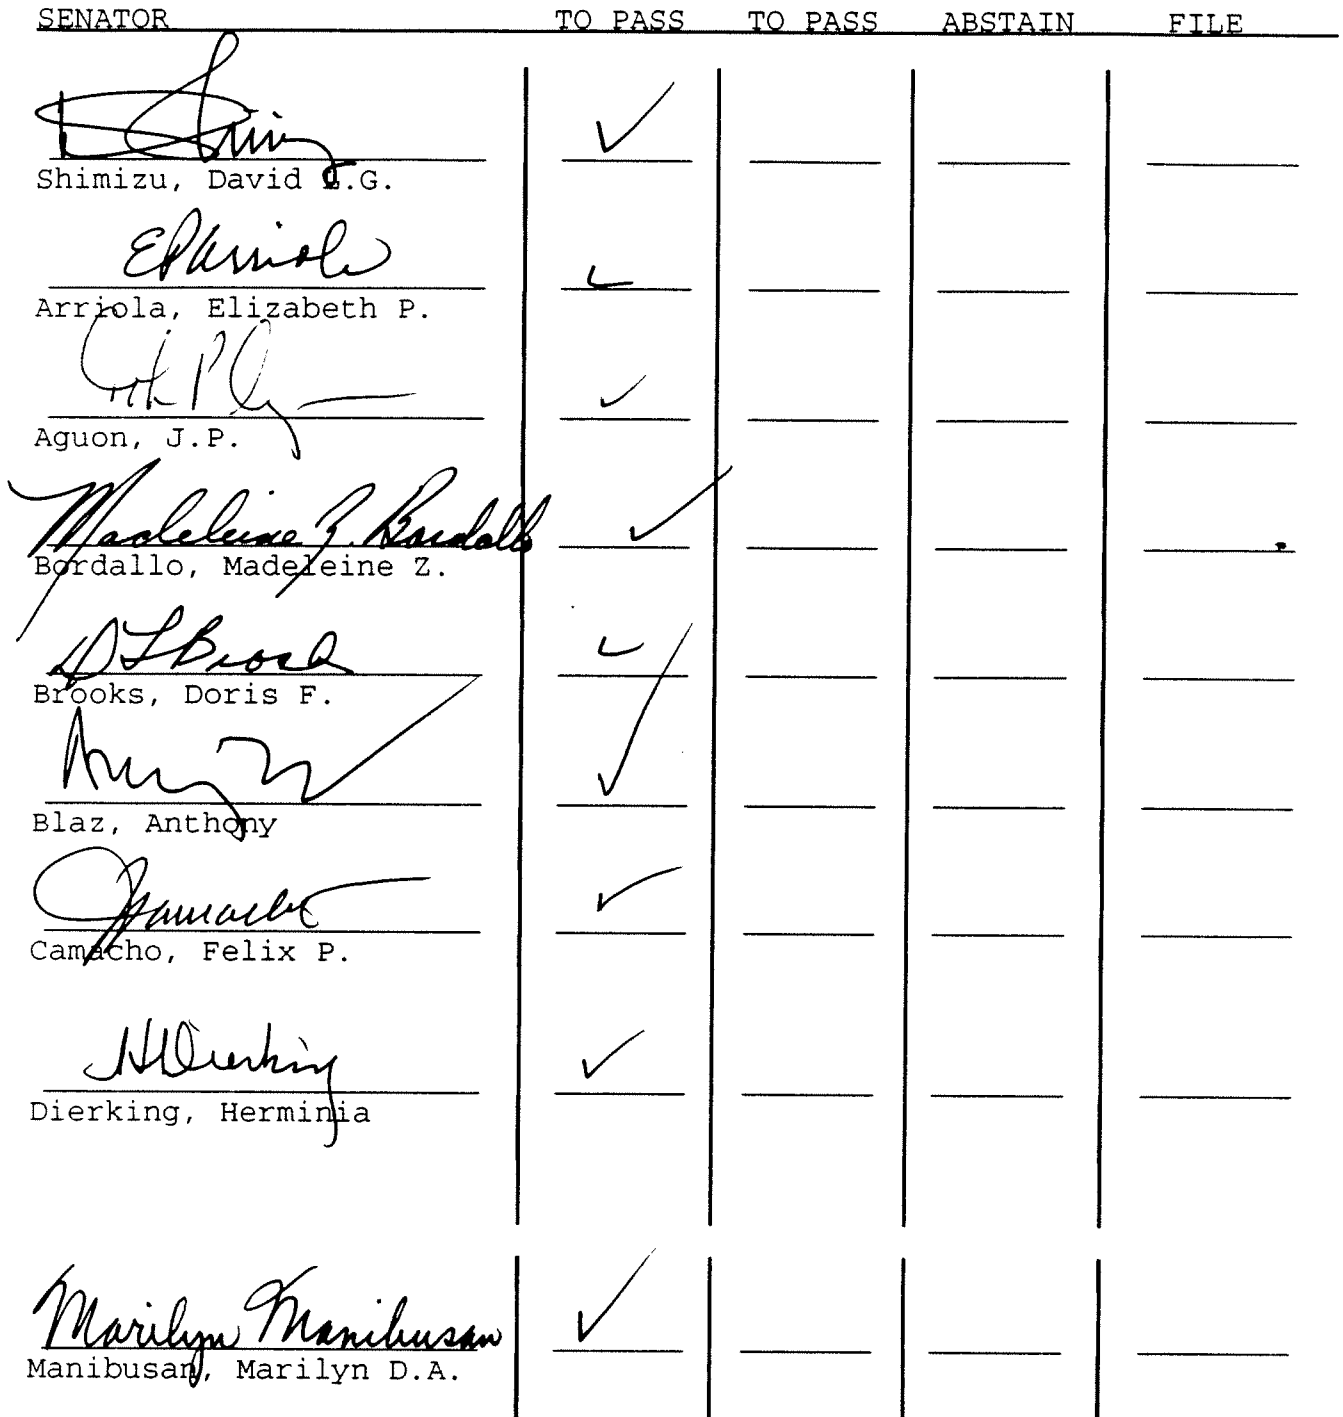 SENATOR TO PASS TO PASS ABSTAIN FILE
✓
Shimizu, David L.G.
EPArriola ✓
Arriola, Elizabeth P.
✓
Aguon, J.P.
Madeleine Z. Bordallo ✓
Bordallo, Madeleine Z.
DFBrooks ✓
Brooks, Doris F.
✓
Blaz, Anthony
Camacho ✓
Camacho, Felix P.
HDierking ✓
Dierking, Herminia
Marilyn Manibusan ✓
Manibusan, Marilyn D.A.